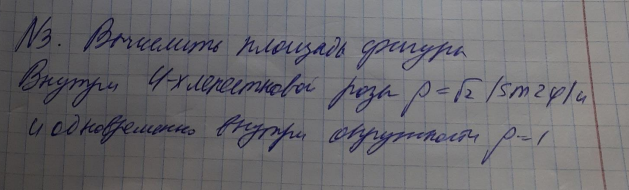 №3. Вычислить площадь фигуры
Внутри 4-х лепестковой розы ρ=√2 |sin2φ| и
и одновременно внутри окружности ρ=1